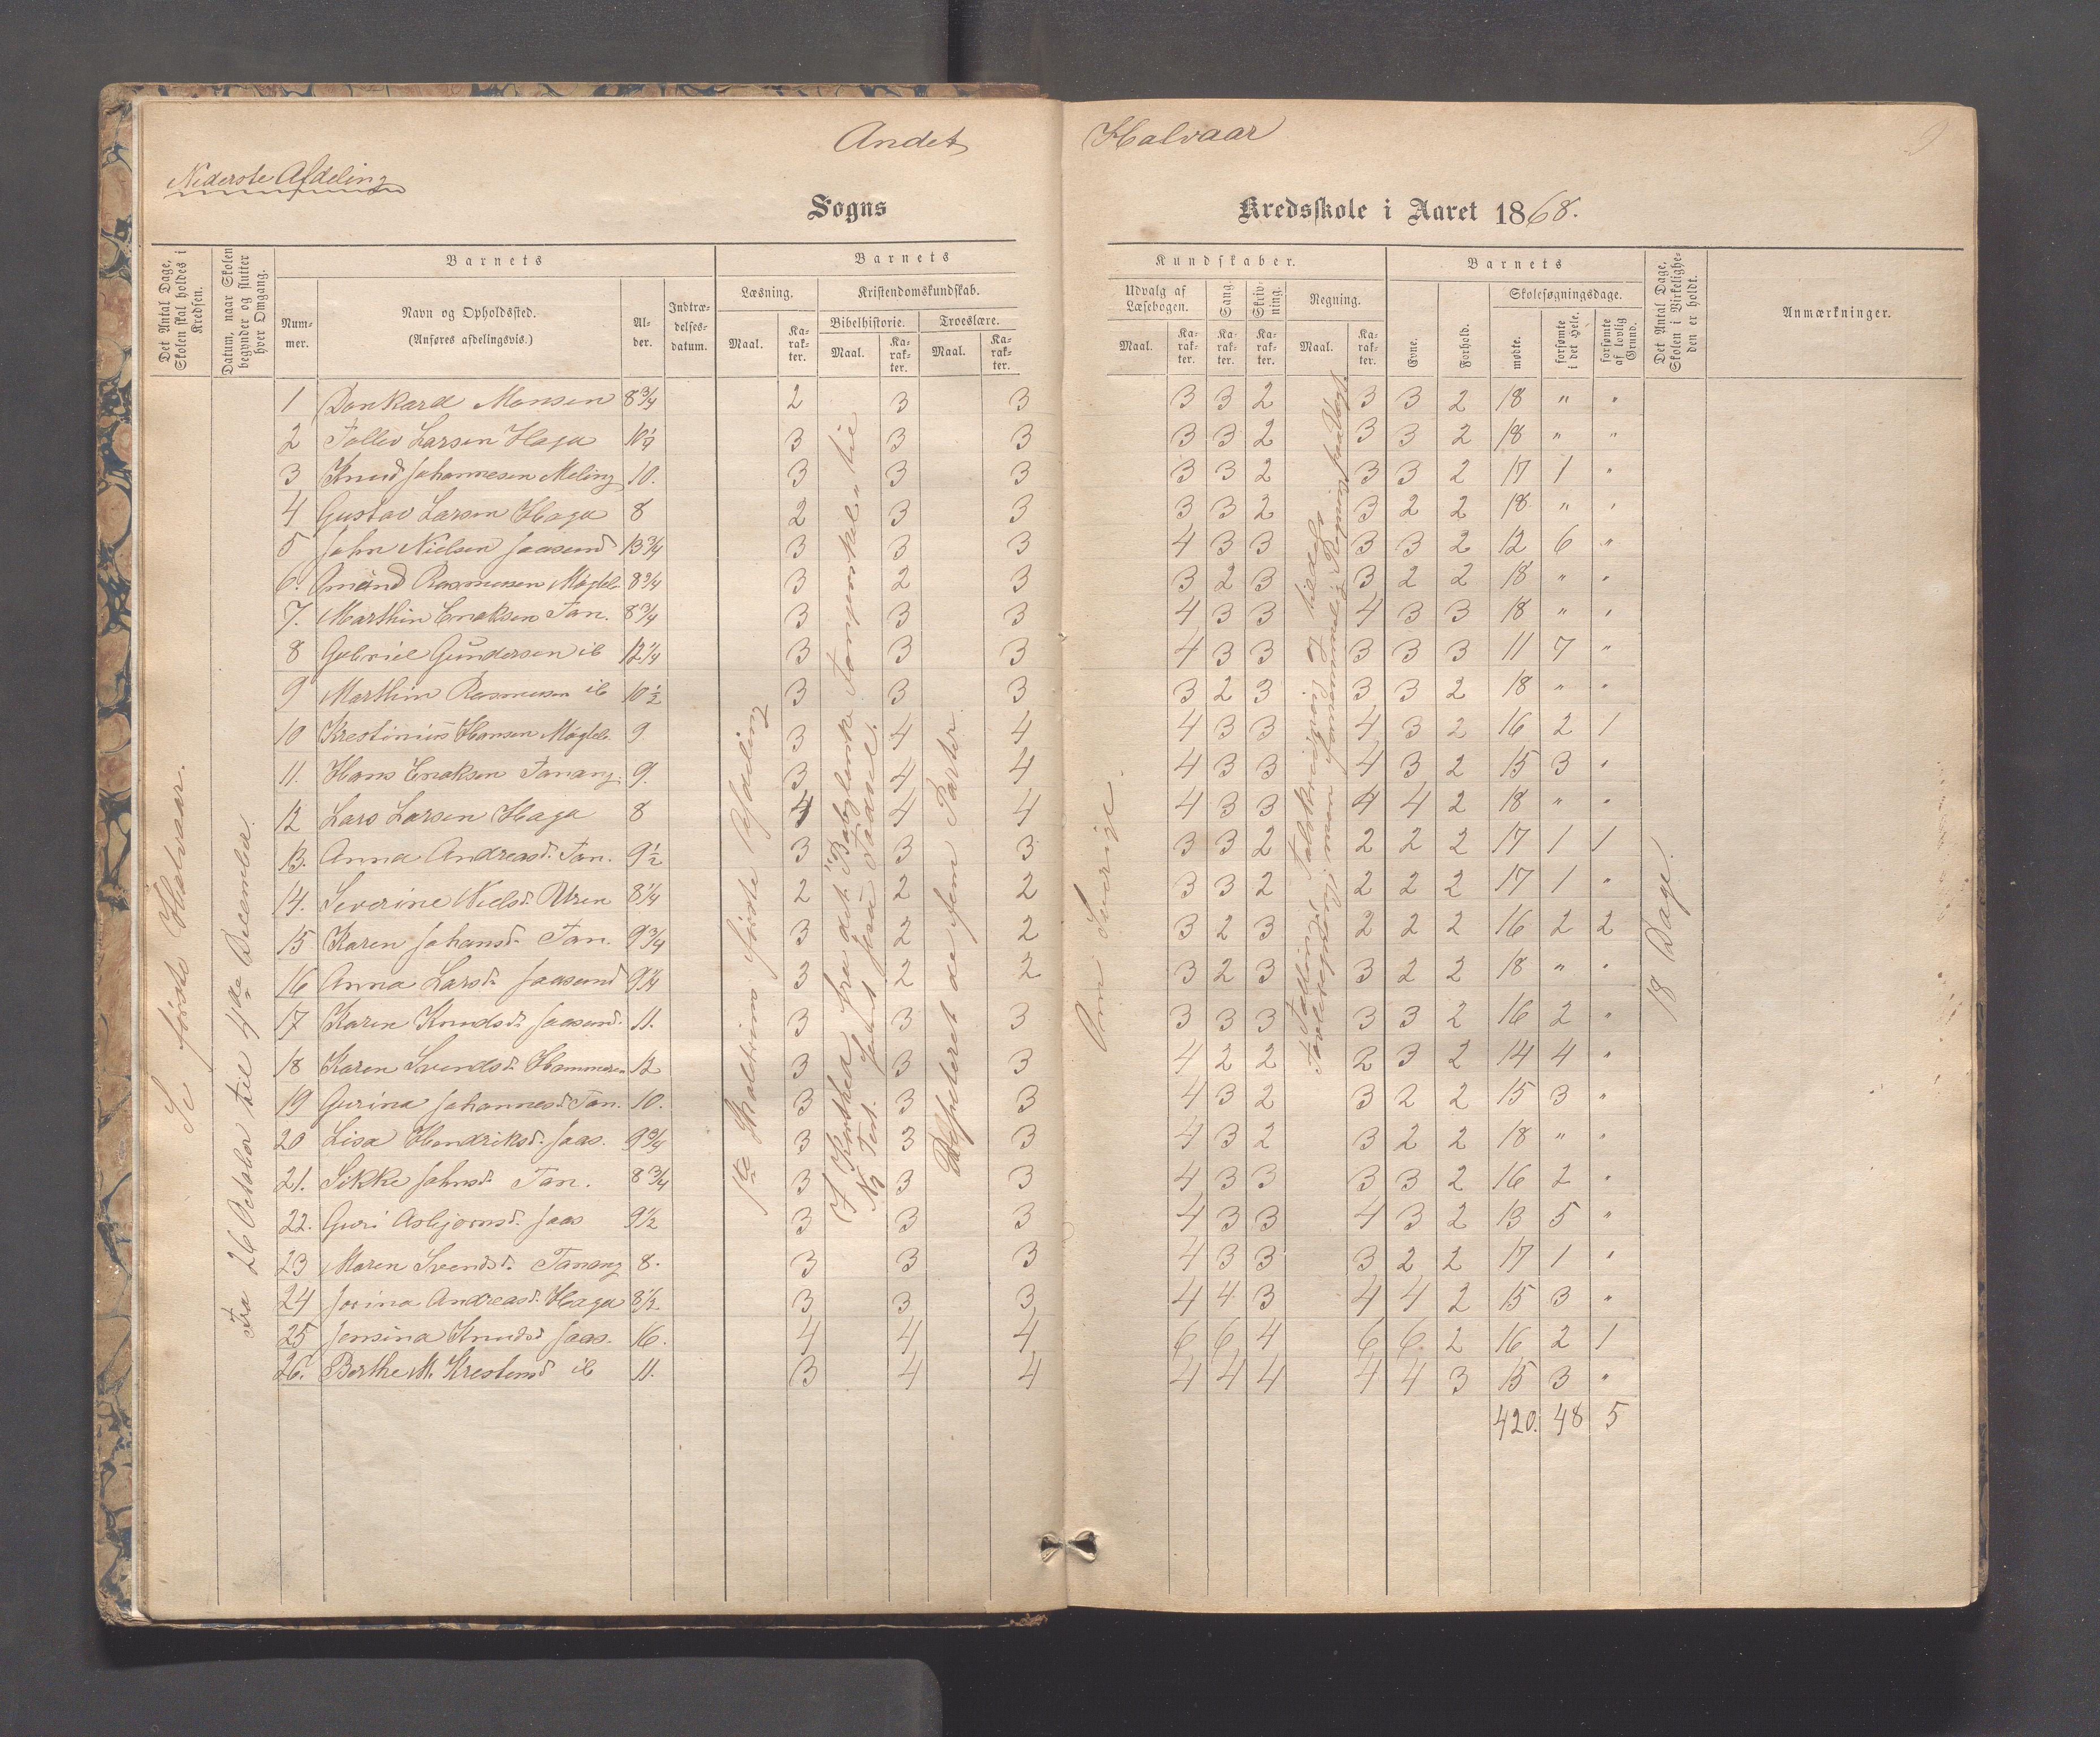 Andet Halvaar
Nederste Afdeling
Sogns Kredsskole i Aaret 1868.
Det Antal Dage, Skolen skal holdes i Kredsen.
Datum, naar Skolen begynder og slutter hver Omgang.
Barnets
Num-mer.
Navn og Opholdssted.
(Anføres afdelingsvis.)
Al-der.
Indtræ-delses-datum.
Barnets Kundskaber.
Læsning.
Maal.
Ka-rak-ter.
Kristendomskundskab.
Bibelhistorie.
Maal.
Ka-rak-ter.
Troeslære.
Maal.
Ka-rak-ter.
Udvalg af Læsebogen.
Maal.
Ka-rak-ter.
Sang.
Ka-rak-ter.
Skriv-ning.
Ka-rak-ter.
Regning.
Maal.
Ka-rak-ter.
Barnets
Evne.
Forhold.
Skolesøgningsdage.
mødte.
forsømte i det Hele.
forsømte af lovlig Grund.
Det Antal Dage, Skolen i Virkelighe-den er holdt.
Anmærkninger.
Se første Halvaar.
Fra 26 October til 4de December.
første Afdeling
Repeteret de fem Parter
Om Sverige.
18 Dage.
1 Dankard Monsen 8 3/4 2 3 3 3 3 2 3 3 2 18 " "
2 Tollev Larsen Haga 10 1/4 3 3 3 3 3 2 3 3 2 18 " "
3 Knud Johannesen Meling 10. 3 3 3 3 3 2 3 3 2 17 1 "
4 Gustav Larsen Haga 8 2 3 3 3 3 2 3 2 2 18 " "
5 John Nielsen Jaasund 13 3/4 3 3 3 4 3 3 3 3 2 12 6 "
6. Rasmussen Møgleb. 8 3/4 3 2 3 3 2 3 3 2 2 18 " "
7. Marthin Ericksen Tan. 8 3/4 3 3 3 4 3 3 4 3 3 18 " "
8 Gabriel Gundersen ib 12 1/4 3 3 3 4 3 3 3 3 3 11 7 "
9 Marthin Rasmussen ib 10 1/2 3 3 3 3 2 3 3 3 2 18 " "
10 Krestinius Hansen Møgleb. 9 3 4 4 4 3 3 4 3 2 16 2 1
11. Hans Ericksen Tanang. 9. 3 4 4 4 3 3 4 3 2 15 3 "
12 Lars Larsen Haga 8 4 4 4 4 3 3 4 4 2 18 " "
13. Anna Andreasd. Tan. 9 1/2 3 3 3 3 3 2 2 2 2 17 1 1
14. Severine Nielsd. 8 1/4 2 2 2 3 3 2 2 2 2 17 1 "
15 Karen Johansd. Tan. 9 3/4 3 2 2 3 2 3 2 2 2 16 2 2
16 Anna Larsd. Jaasund 9 1/4 3 2 2 3 2 3 3 2 2 18 " "
17 Karen Knudsd. Jaasund. 11. 3 3 3 3 3 3 3 3 2 16 2 "
18 Karen Svendsd. Hammeren 12 3 3 3 4 2 2 2 3 2 14 4 "
19 Gurina Johannesd. Tan. 10. 3 3 3 4 3 2 3 2 2 15 3 "
20 Lisa Hendriksd. Jaas. 9 3/4 3 3 3 4 3 2 3 2 2 18 " "
21. Sikke Johnsd. Tan. 8 3/4 3 3 3 4 3 3 3 3 2 16 2 "
22. Guri Asbjørnsd. Jaas 9 1/2 3 3 3 4 3 3 4 3 2 13 5 "
23 Maren Svendsd. Tanang 8. 3 3 3 4 3 3 3 2 2 17 1 "
24 Jorina Andreasd. Haga 8 1/2 3 3 3 4 4 3 4 4 2 15 3 "
25 Jensina Knudsd Jaas. 16. 4 4 4 6 6 4 6 6 2 16 2 1
26. Berthe M. Krestensd ib 11. 3 4 4 4 4 4 4 4 3 15 3 "
420. 48 5